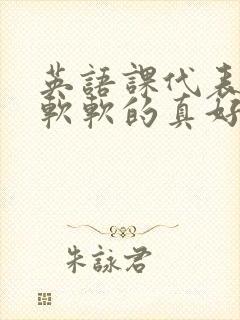 英語課代表
軟軟的真好
朱詠君